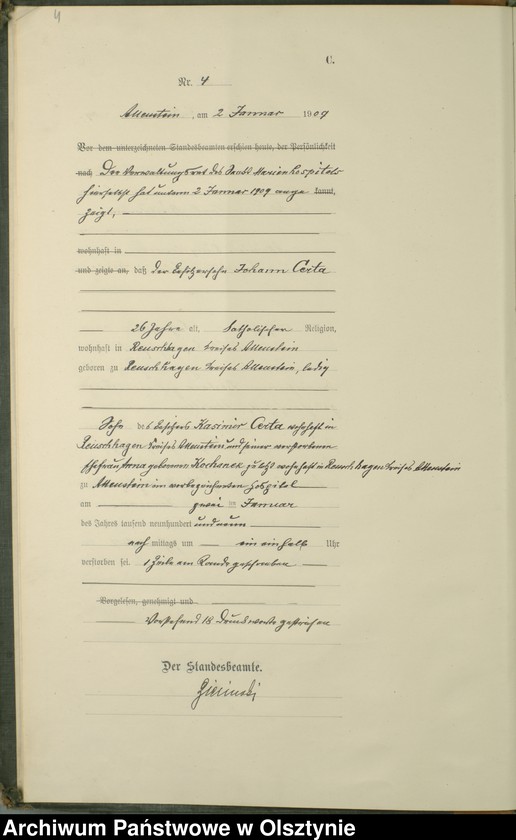 4
C.
Nr. 4
Allenstein, am 2 Januar 1909
Vor dem unterzeichneten Standesbeamten erschien heute, der Persönlichkeit
nach Der Verwaltungsrat des Sankt Marienhospitals
hierselbst hat unterm 2. Januar 1909 ange kannt,
zeigt,
wohnhaft in
und zeigte an, daß der Besitzersohn Johann Certa
26 Jahre alt, katholischer Religion,
wohnhaft in Reuschhagen Kreises Allenstein
geboren zu Reuschhagen Kreises Allenstein, ledig
Sohn des Besitzers Kasimier Certa wohnhaft in
Reuschhagen Kreises Allenstein und seiner verstorbenen
Ehefrau Anna geborenen zuletzt wohnhaft in Reuschhagen Kreises Allenstein
zu Allenstein im vorbezeichneten Hospital
am zwei ten Januar
des Jahres tausend neunhundert und neun
nach mittags um ein einhalb Uhr
verstorben sei. 1 Zeile am Rande geschrieben
Vorgelesen, genehmigt und
Vorstehend 18 Druckworte gestrichen
Der Standesbeamte.
Archiwum Państwowe w Olsztynie